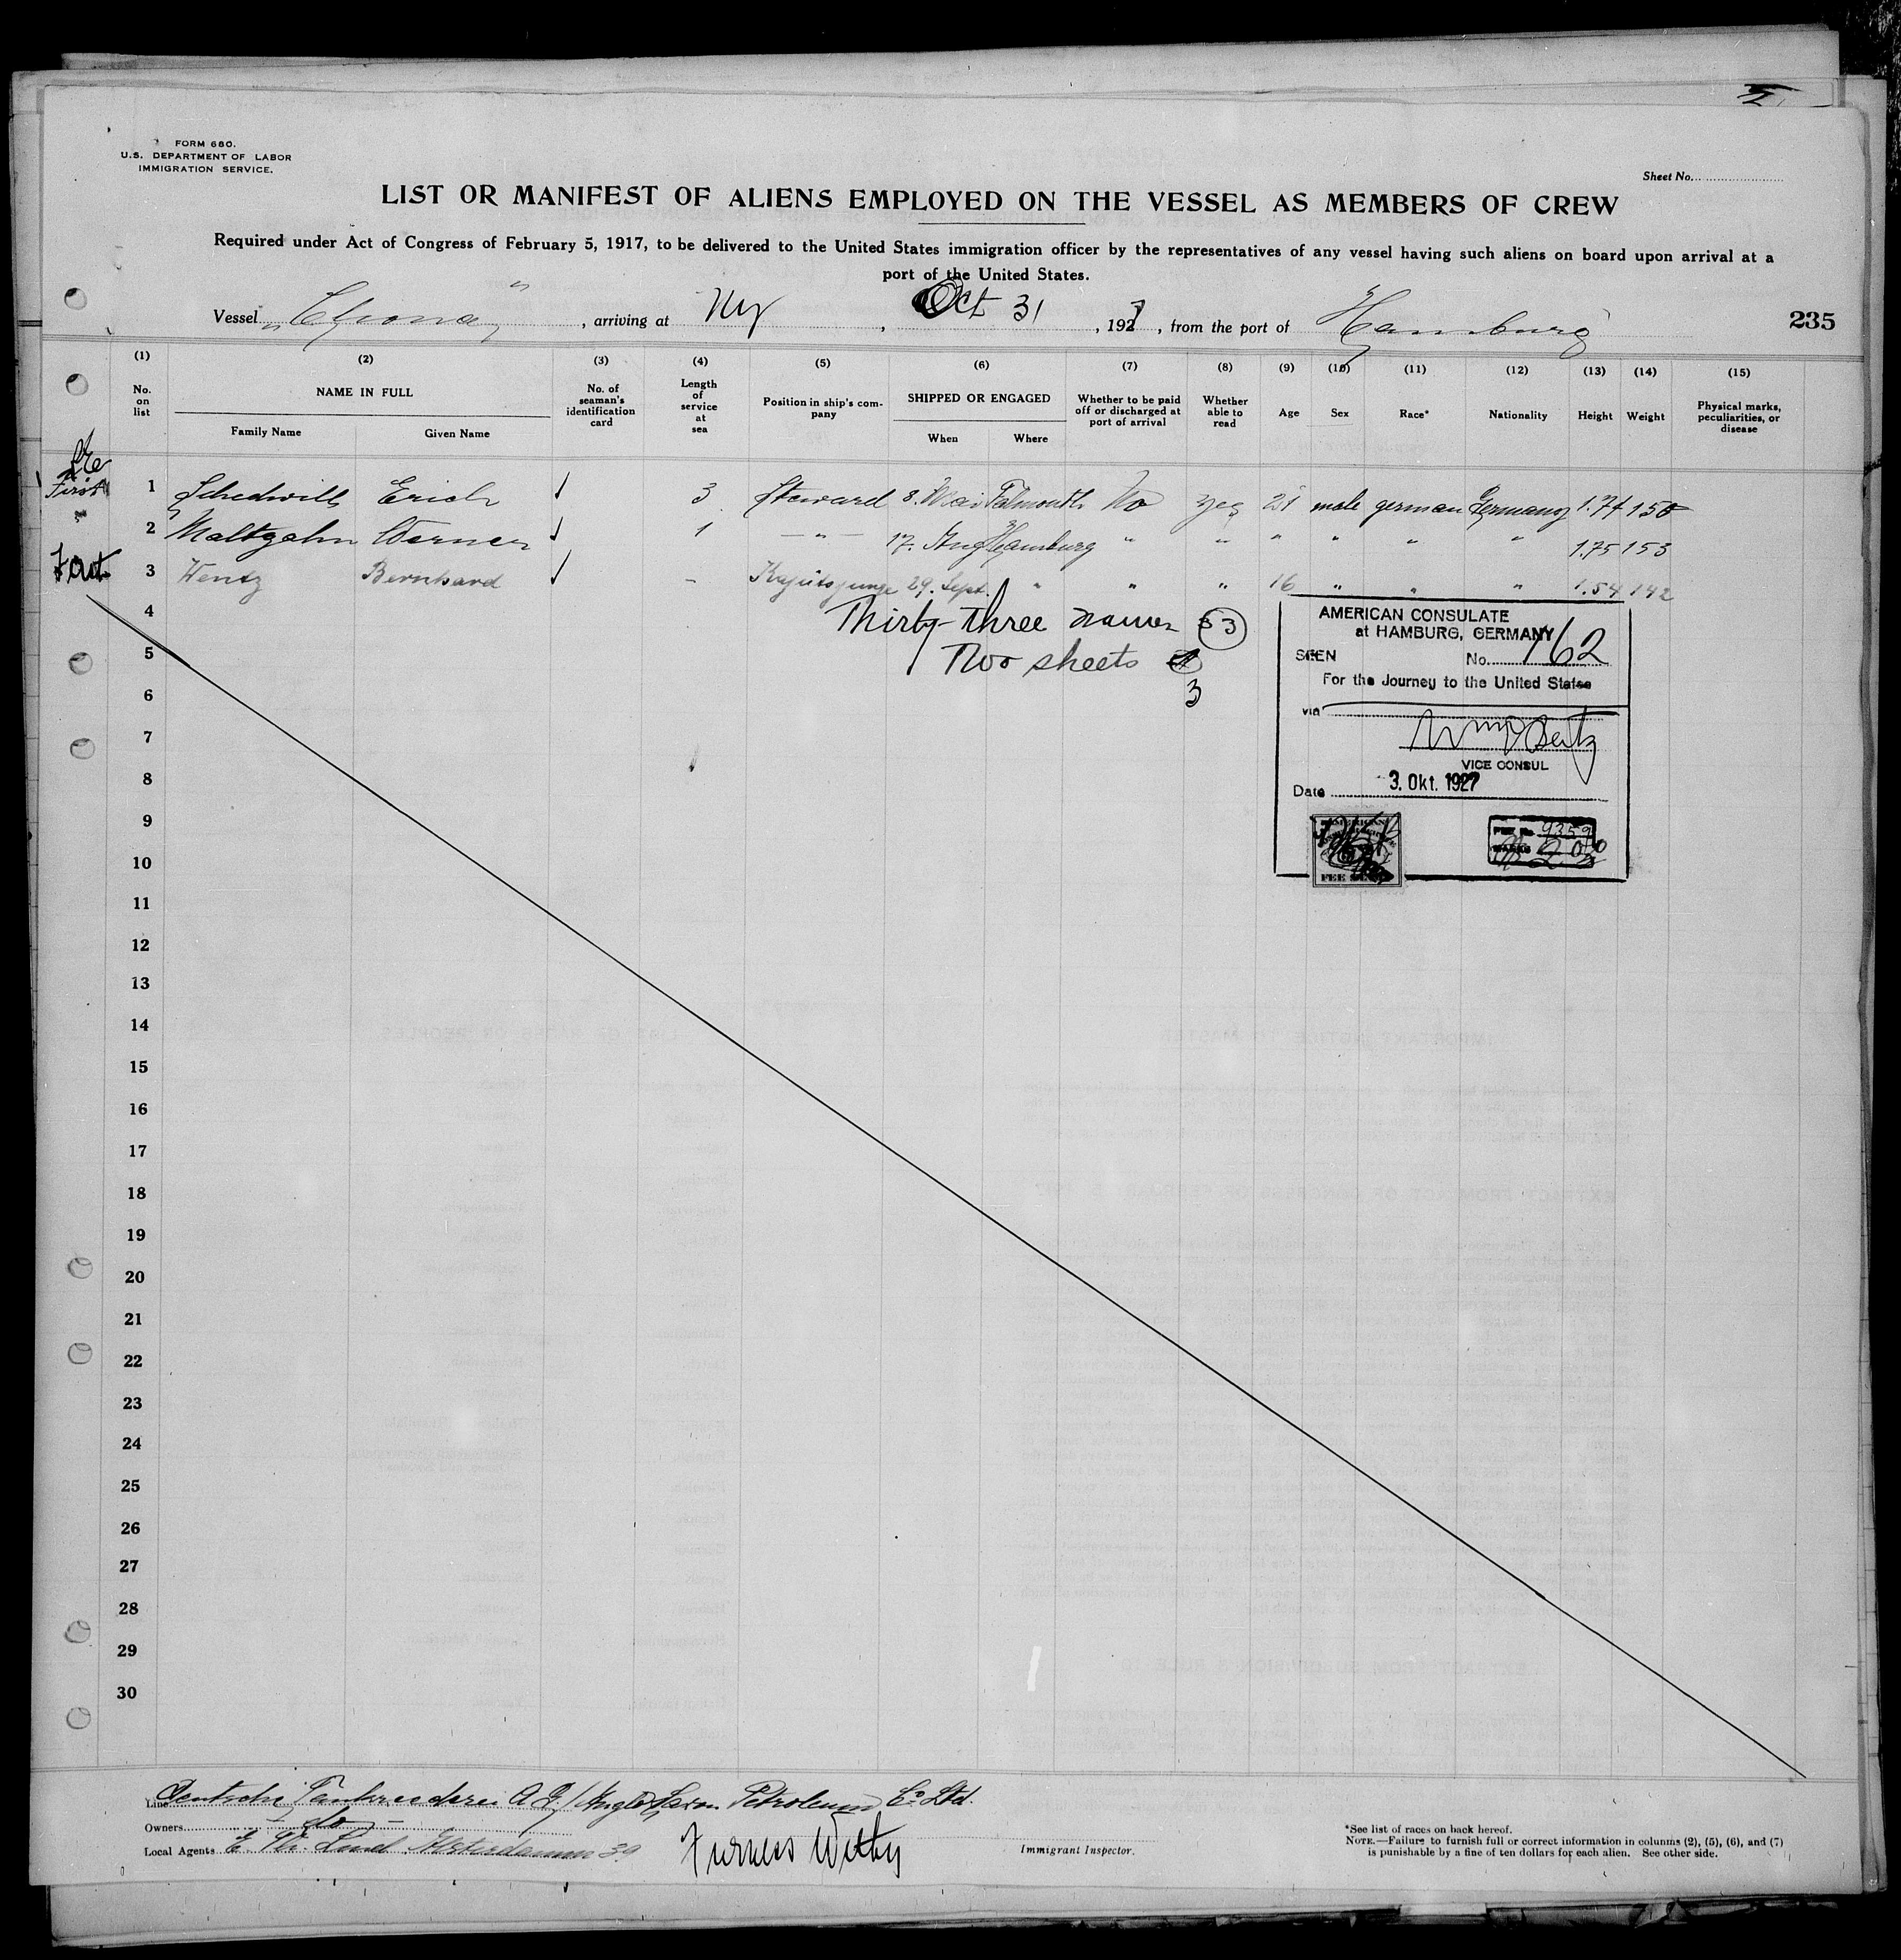 FORM 680.
U.S. DEPARTMENT OF LABOR
IMMIGRATION SERVICE.
Sheet No.
LIST OR MANIFEST OF ALIENS EMPLOYED ON THE VESSEL AS MEMBERS OF CREW
Required under Act of Congress of February 5, 1917, to be delivered to the United States immigration officer by the representatives of any vessel having such aliens on board upon arrival at a
port of the United States.
Vessel , arriving at Ny , Oct 31 , 1927 , from the port of Hamburg
235
(1) (2) (3) (4) (5) (6) (7) (8) (9) (10) (11) (12) (13) (14) (15)
No. on list NAME IN FULL Family Name Given Name No. of seaman's identification card Length of service at sea Position in ship's company SHIPPED OR ENGAGED When Where Whether to be paid off or discharged at port of arrival Whether able to read Age Sex Race* Nationality Height Weight Physical marks, peculiarities, or disease
First 1 Schedwill Erich ✓ 3 Steward 8. Falmouth No yes 21 male german Germany 1.74 150
" 2 Maltzahn Werner ✓ 1 — " — 17. Aug Hamburg " " " " " " 1.75 153
3 Wentz Bernhard ✓ - Kajütsjunge 29. Sept. " " " 16 " " " 1.54 142
4
Thirty-three names 33
5
Two sheets
3
AMERICAN CONSULATE
at HAMBURG, GERMANY
SEEN No. 162
For the Journey to the United States
via
VICE CONSUL
Date 3. Okt. 1927
FEE No. 9359
6
7
8
9
10
11
12
13
14
15
16
17
18
19
20
21
22
23
24
25
26
27
28
29
30
Line Deutsche Tankreederei A.G./Anglo Saxon Petroleum Co. Ltd.
Owners do —
Local Agents E. Th. Lind Alsterdamm 39 Furness Withy
Immigrant Inspector.
*See list of races on back hereof.
NOTE.—Failure to furnish full or correct information in columns (2), (5), (6), and (7)
is punishable by a fine of ten dollars for each alien. See other side.